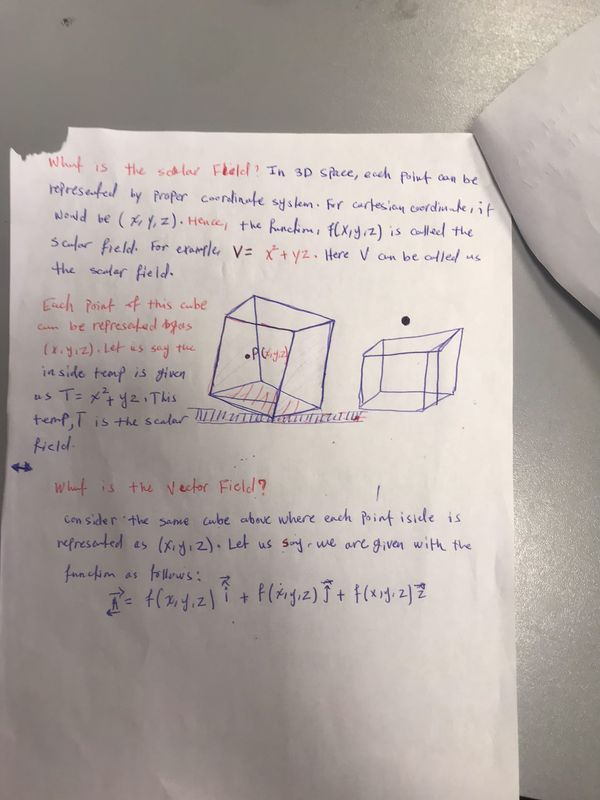 What is the scalar Field? In 3D space, each point can be
represented by proper coordinate system. For cartesian coordinate, it
would be (x, y, z). Hence, the function, f(x,y,z) is called the
scalar field. For example, V = x² + yz. Here V can be called as
the scalar field.
Each point of this cube
can be represented by as
(x, y, z). Let us say the
inside temp is given
as T = x² + yz. This
temp, T is the scalar
field.
P(x,y,z)
What is the Vector Field?
consider the same cube above where each point iside is
represented as (x, y, z). Let us say, we are given with the
function as follows:
A⃗ = f(x,y,z) i⃗ + f(x,y,z) j⃗ + f(x,y,z) z⃗